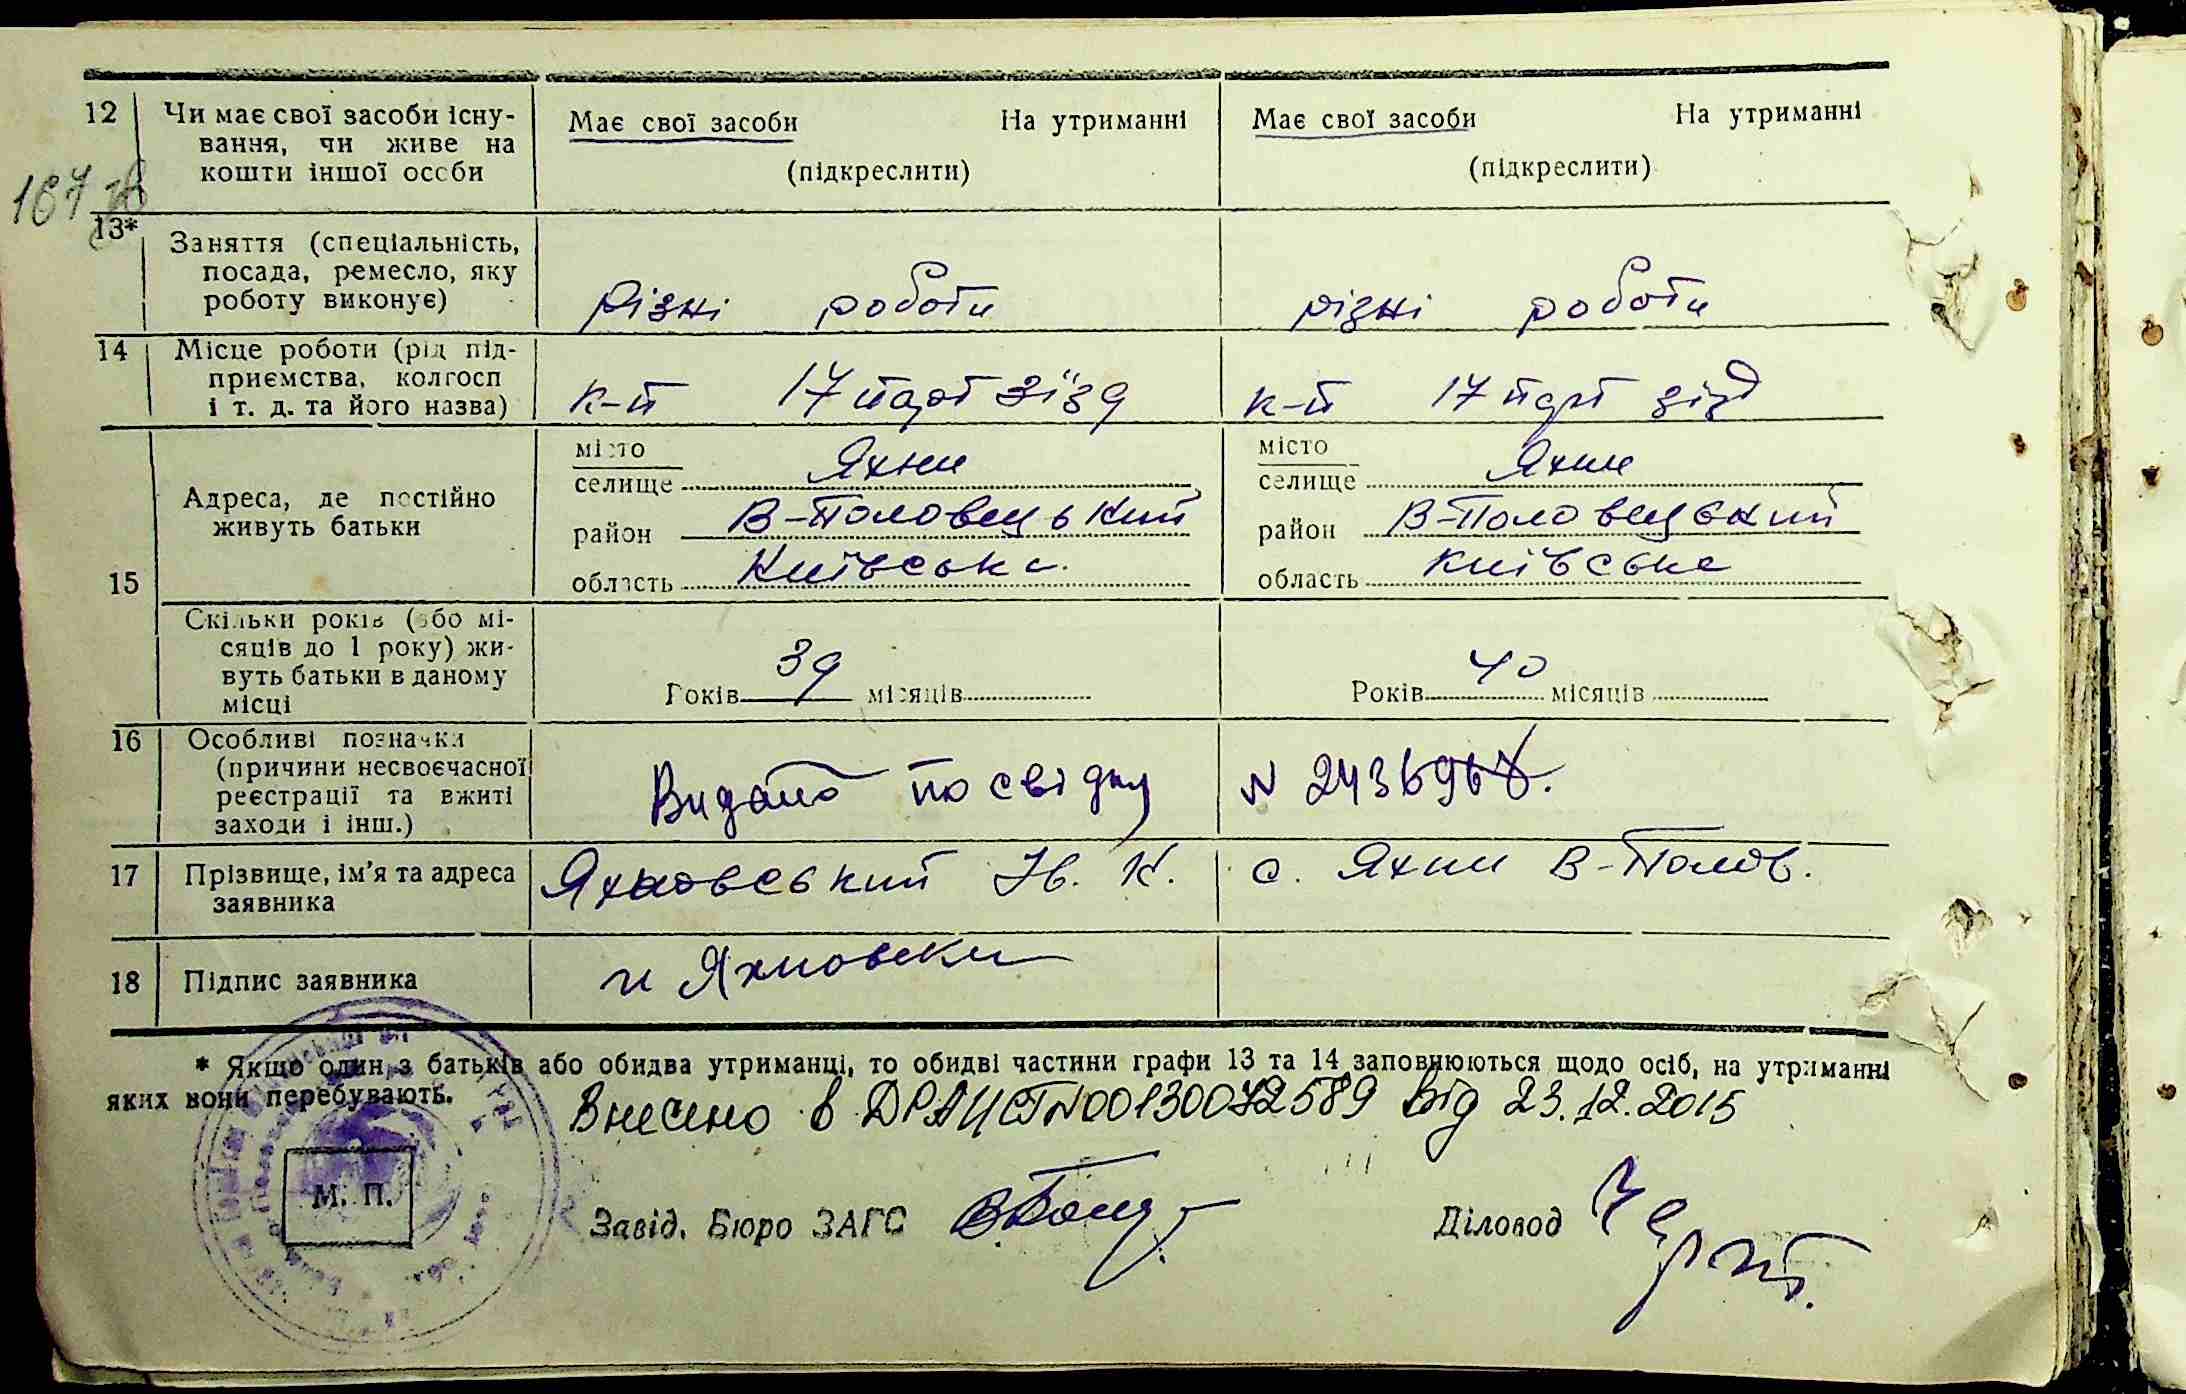 12 Чи має свої засоби існу-
вання, чи живе на
кошти іншої особи
Має свої засоби На утриманні
(підкреслити)
Має свої засоби На утриманні
(підкреслити)
167
13* Заняття (спеціальність,
посада, ремесло, яку
роботу виконує)
різні роботи
різні роботи
14 Місце роботи (рід під-
приємства, колгосп
і т. д. та його назва)
к-п 17 парт зїзд
к-п 17 парт зізд
15
Адреса, де постійно
живуть батьки
місто
селище Яхни
район В-Половецький
область Київська
місто
селище Яхни
район В-Половецький
область Київська
Скільки років (або мі-
сяців до 1 року) жи-
вуть батьки в даному
місці
Років 39 місяців
Років 40 місяців
16 Особливі позначки
(причини несвоєчасної
реєстрації та вжиті
заходи і інш.)
Видано посвідку
N 2436968.
17 Прізвище, ім'я та адреса
заявника
Яхновський Ів. К.
с. Яхни В-Полов.
18 Підпис заявника
Яхновски
* Якщо один з батьків або обидва утриманці, то обидві частини графи 13 та 14 заповнюються щодо осіб, на утриманні
яких вони перебувають.
Внесено в ДРАЦСГ N00130072589 від 23.12.2015
М. П.
Завід. Бюро ЗАГС
Діловод